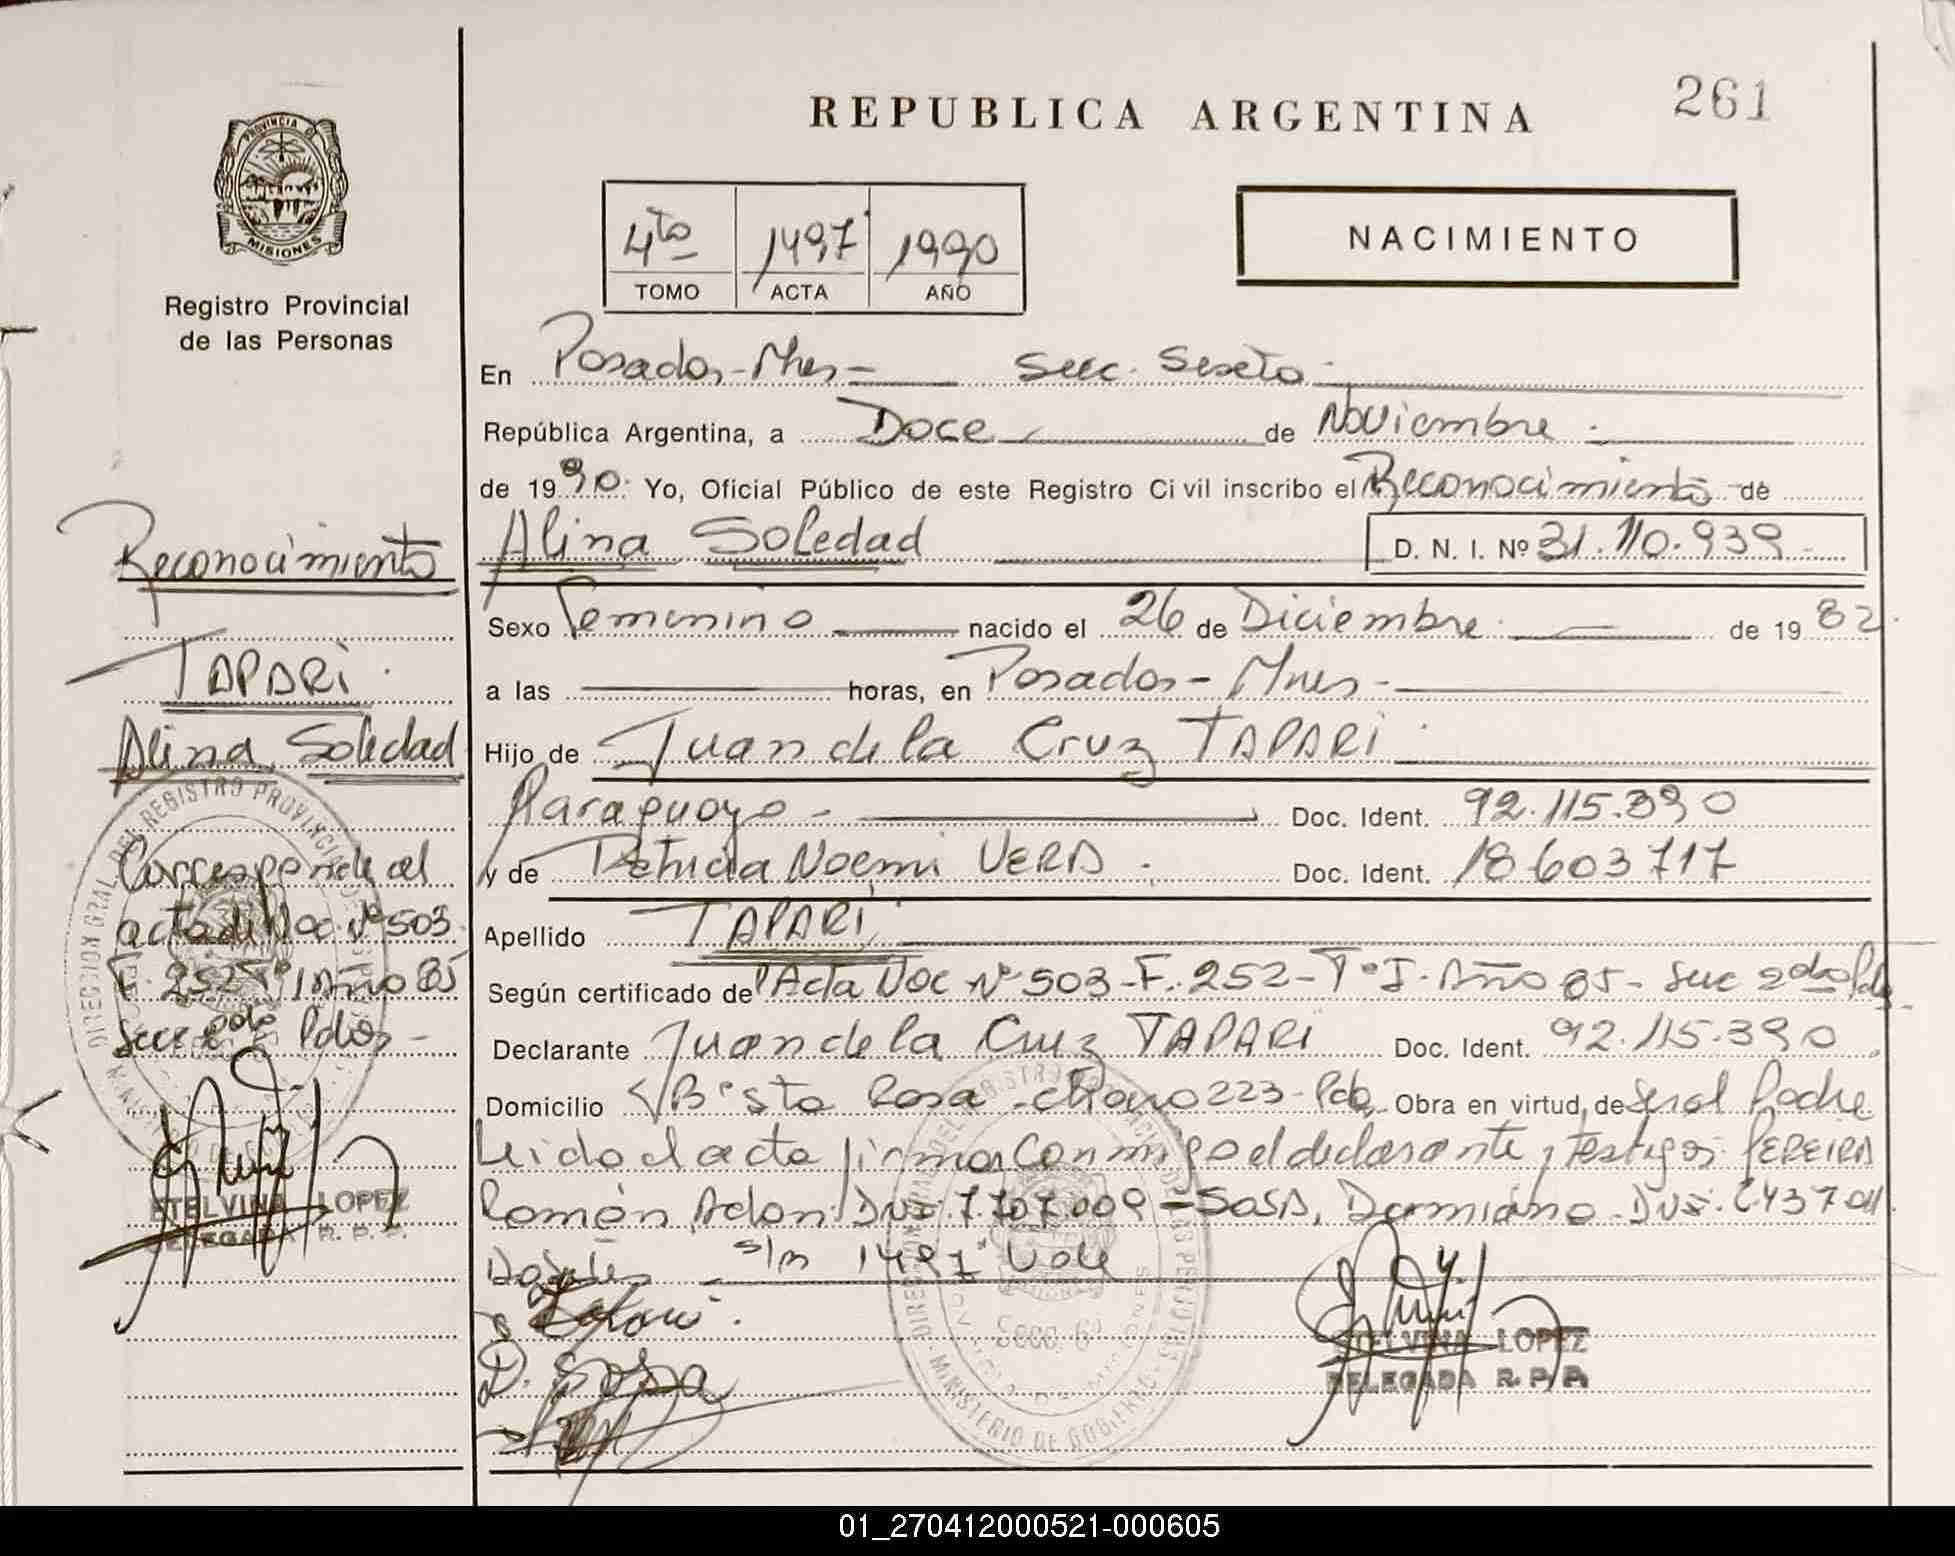 261
REPUBLICA ARGENTINA
PROVINCIA DE
MISIONES
Registro Provincial
de las Personas
4to 1497 1990
TOMO ACTA AÑO
NACIMIENTO
En Posadas-Mnes- Secc. Sexta
República Argentina, a Doce de Noviembre
de 1990 Yo, Oficial Público de este Registro Civil inscribo el Reconocimiento de
Alina Soledad D. N. I. Nº 31.110.939
Sexo Femenino nacido el 26 de Diciembre de 1982
a las horas, en Posadas-Mnes-
Hijo de Juan de la Cruz TAPARI
Paraguayo - Doc. Ident. 92.115.390
y de Patricia Noemi VERA Doc. Ident. 18603717
Apellido TAPARI
Según certificado de Acta Nac Nº 503-F. 252-Tº I-Año 85- Secc 2da Pdas
Declarante Juan de la Cruz TAPARI Doc. Ident. 92.115.390
Domicilio Bº Sta Rosa - 223- Pdas Obra en virtud de ser el Padre
Leida el acta firman conmigo el declarante y testigos PEREIRA
Román Adan DNI 7.707.009 - SOSA, Damiano - DNI
s/n 1497 Vale
D. Sosa
Secc. 6
ETELVINA LOPEZ
DELEGADA R. P. P.
Reconocimiento
TAPARI
Alina Soledad
Corresponde al
acta de Nac. Nº 503
F. 252 Tº I Año 85
Secc 2da Pdas-
ETELVINA LOPEZ
DELEGADA R. P. P.
01_270412000521-000605